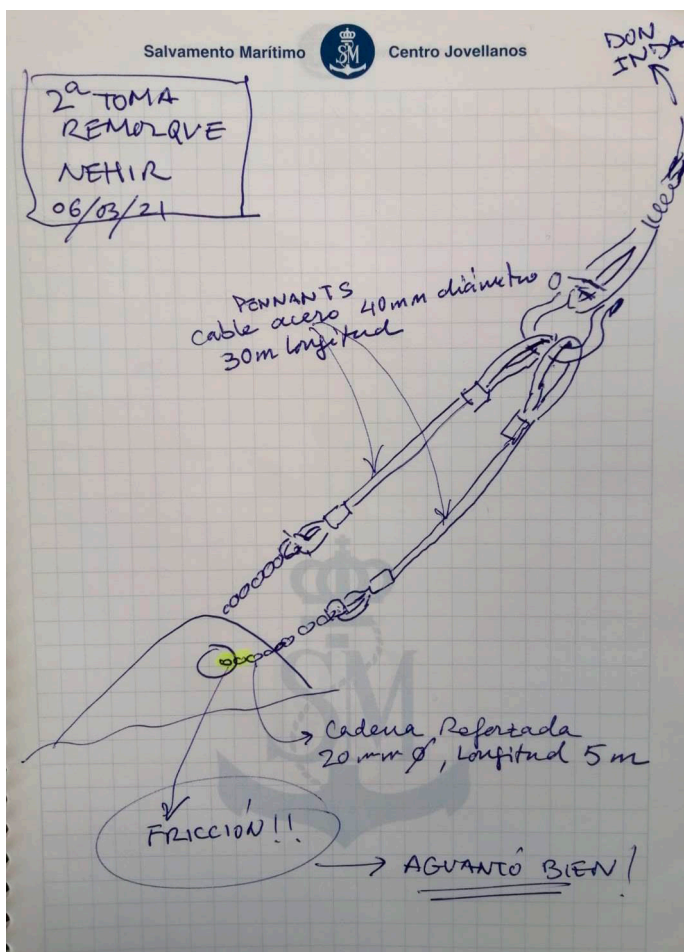 Salvamento Marítimo
SM
Centro Jovellanos
2ª TOMA
REMOLQUE
NEHIR
06/03/21
DON
INDA
PENNANTS
cable acero 40mm diámetro
30m longitud
Cadena Reforzada
20 mm Ø, Longitud 5 m
FRICCIÓN!!
AGUANTÓ BIEN!
SM